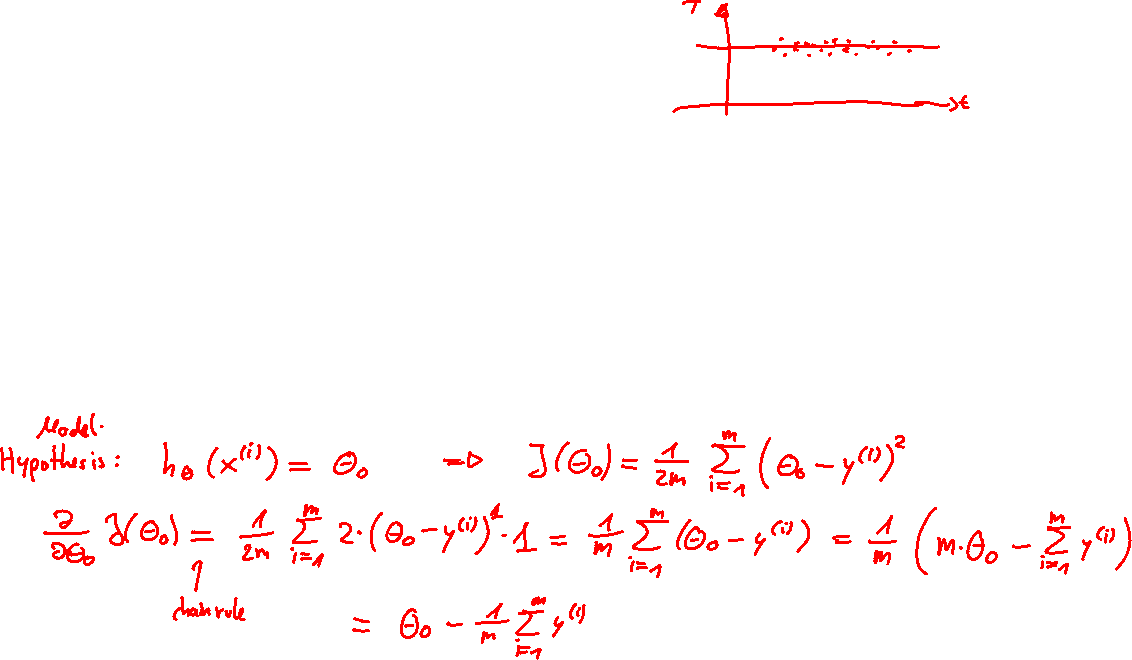 T
t
Model.
Hypothesis: h_θ (x^(i)) = θ_0 => J(θ_0) = 1/2m ∑_{i=1}^{m} (θ_0 - y^(i))^2
∂/∂θ_0 J(θ_0) = 1/2m ∑_{i=1}^{m} 2·(θ_0 - y^(i))^1 · 1 = 1/m ∑_{i=1}^{m} (θ_0 - y^(i)) = 1/m (m·θ_0 - ∑_{i=1}^{m} y^(i))
↑
chain rule
= θ_0 - 1/m ∑_{i=1}^{m} y^(i)